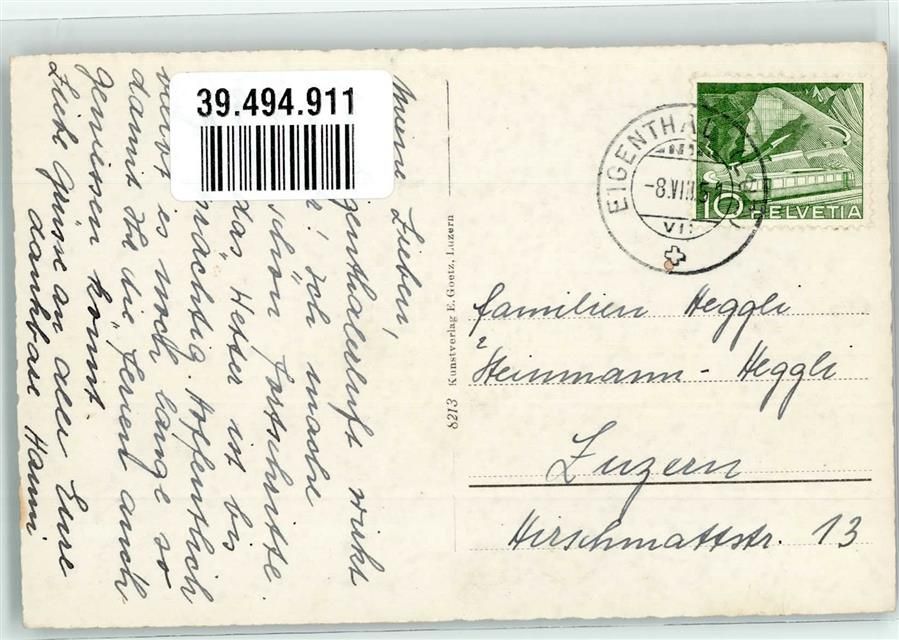 39.494.911
Meine Lieben!
genthalerluft wirkt
! Ich mache
schon Fortschritte
das Wetter ist bis
prächtig. Hoffentlich
bleibt es noch lange so
damit Ihr die Ferien auch
geniessen könnt.
Liebe Grüsse an alle Eure
dankbare Hanni
8213 Kunstverlag E. Goetz, Luzern
EIGENTHAL
-8.VIII.5
VII
10 HELVETIA
Familien Heggli
& Steinmann-Heggli
Luzern
Hirschmattstr. 13